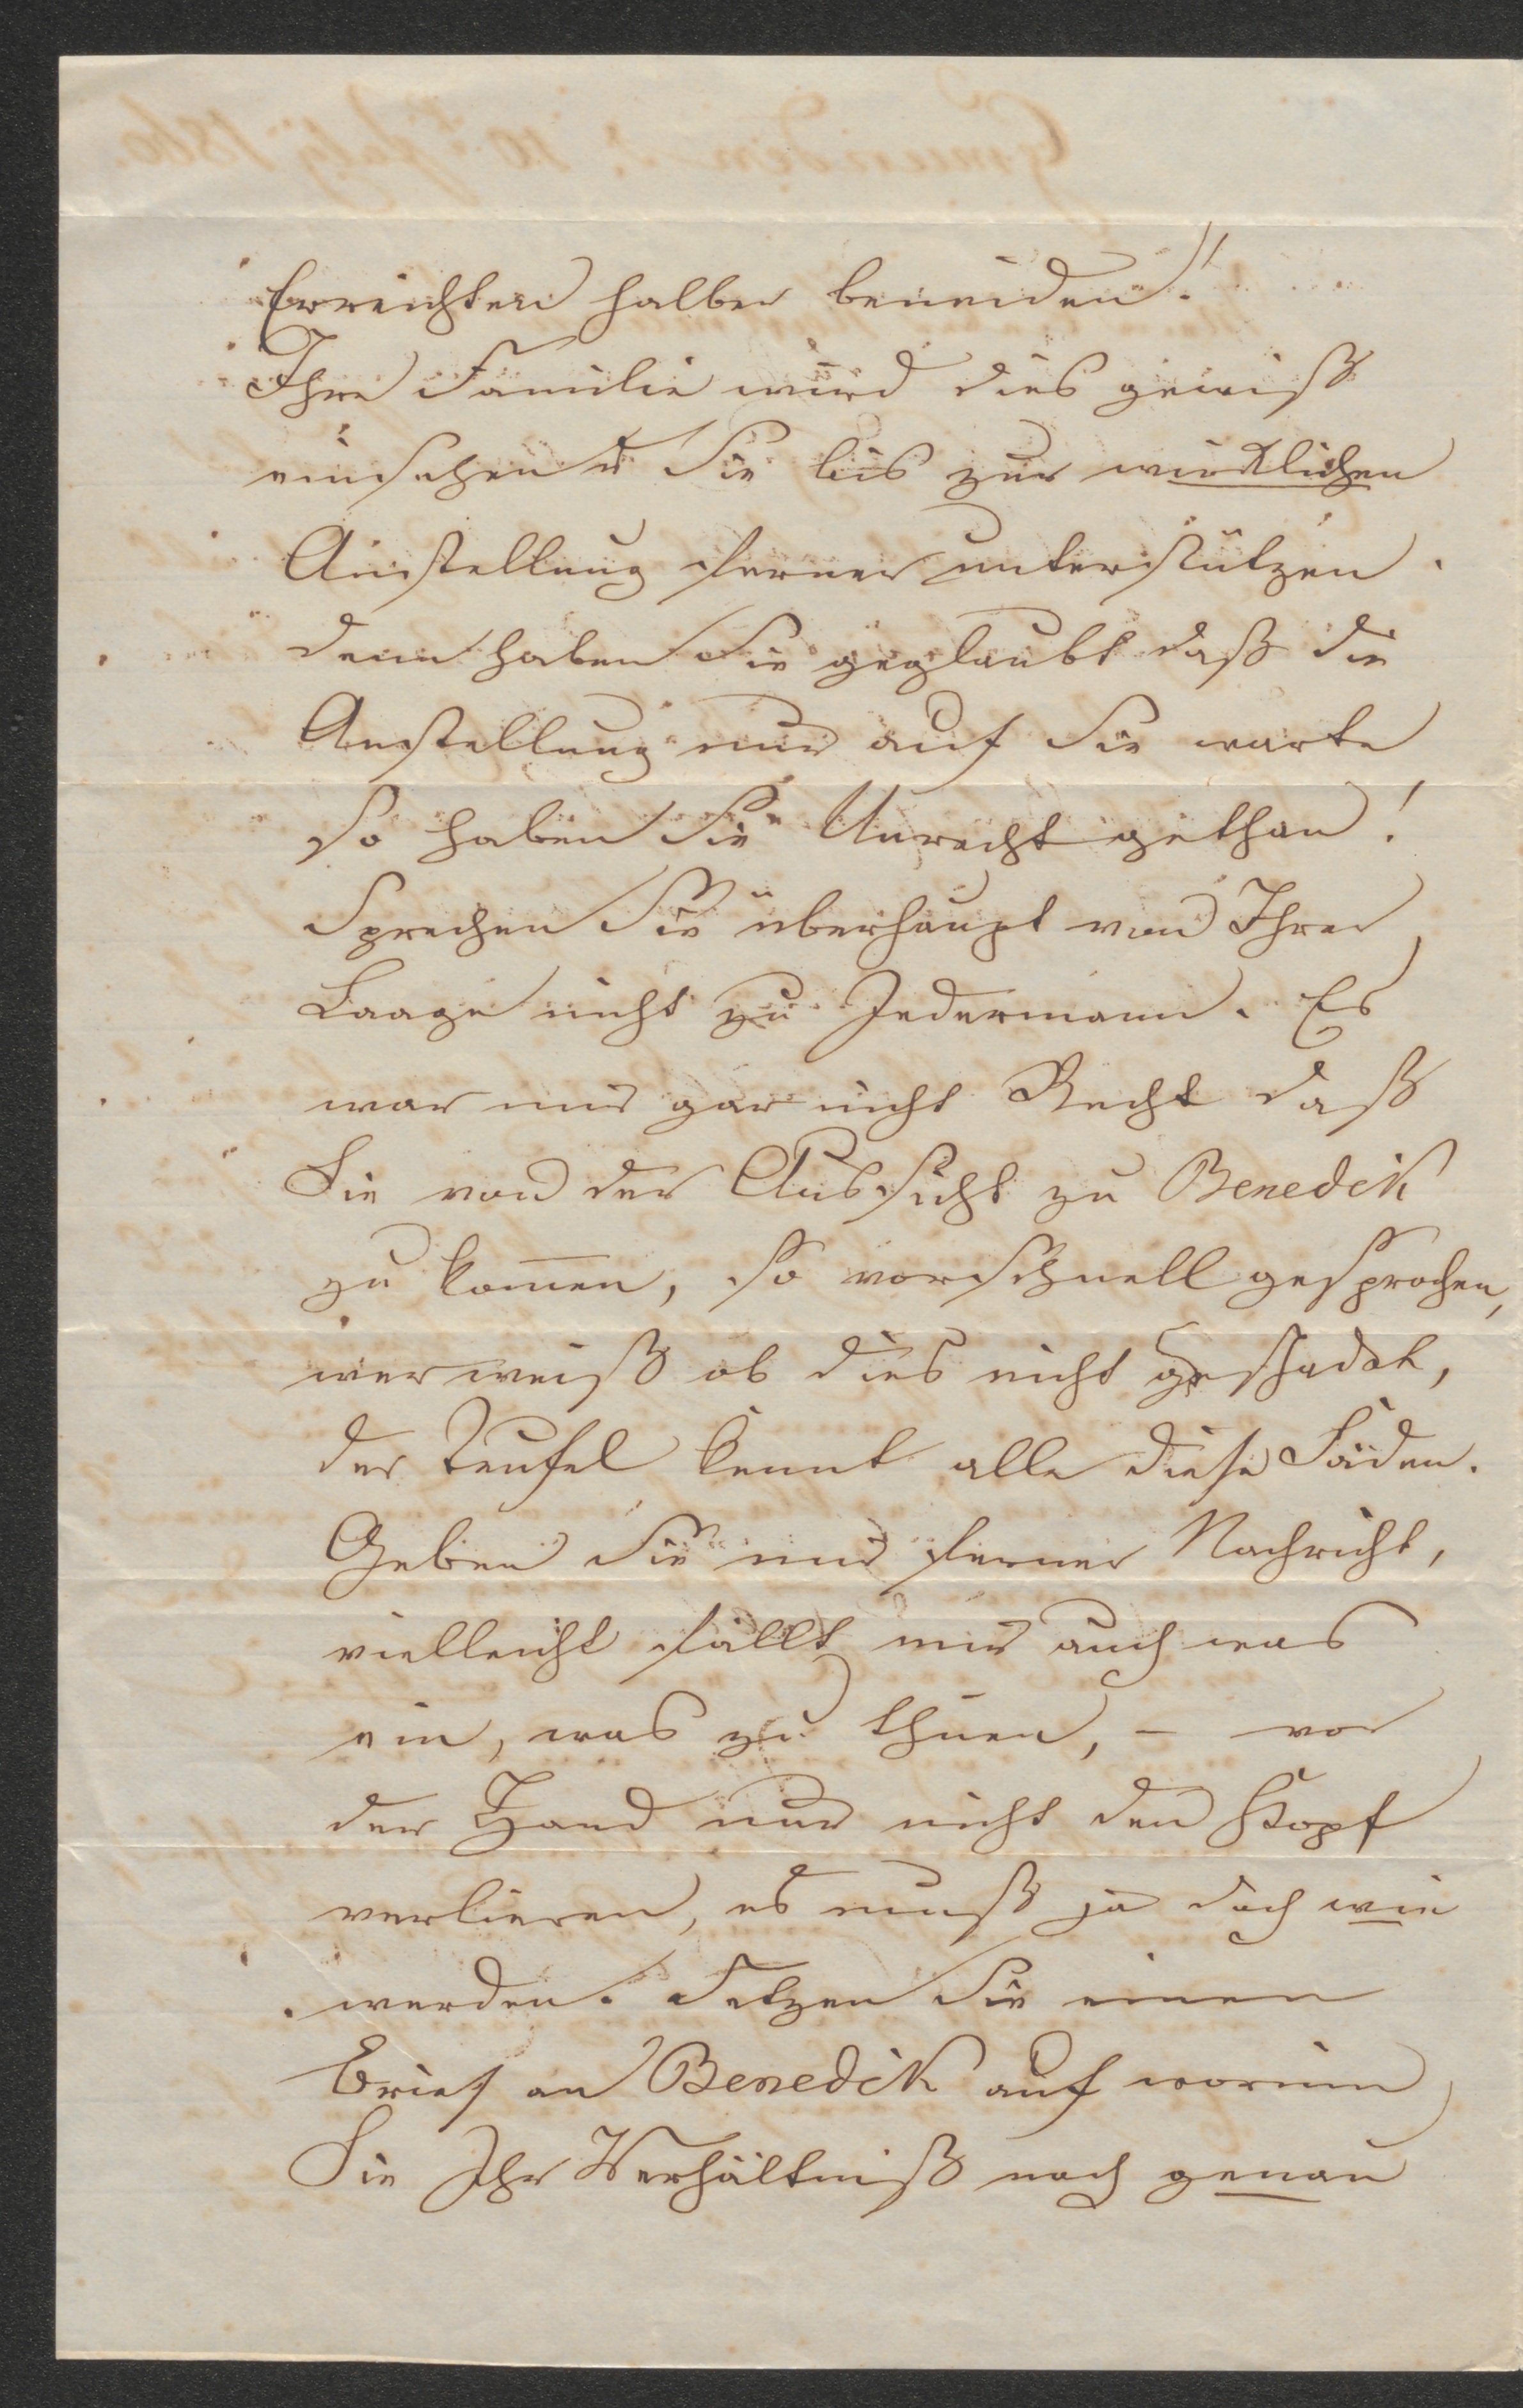 Erreichten halber beneiden!
Ihre Familie wird dies gewiß
einsehen u Sie bis zur wirklichen
Anstellung ferner unterstützen.
denn haben Sie geglaubt daß die
Anstellung nur auf Sie warte
so haben Sie Unrecht gethan!
Sprechen Sie überhaupt von Ihrer
Laage nicht zu Jedermann. Es
war mir gar nicht Recht daß
Sie von der Aussicht zu Benedek
zu kom̅en, so vorschnell gesprochen,
wer weiß ob dies nicht geschadet,
der Teufel kennt alle diese Fäden.
Geben Sie mir ferner Nachricht,
vielleicht fällt mir auch was
ein, was zu thuen, – vor
der Hand nur nicht den Kopf
verlieren, es muß ja doch wie
werden. Setzen Sie einen
Brief an Benedek auf worinn
Sie Ihr Verhältniß noch genau